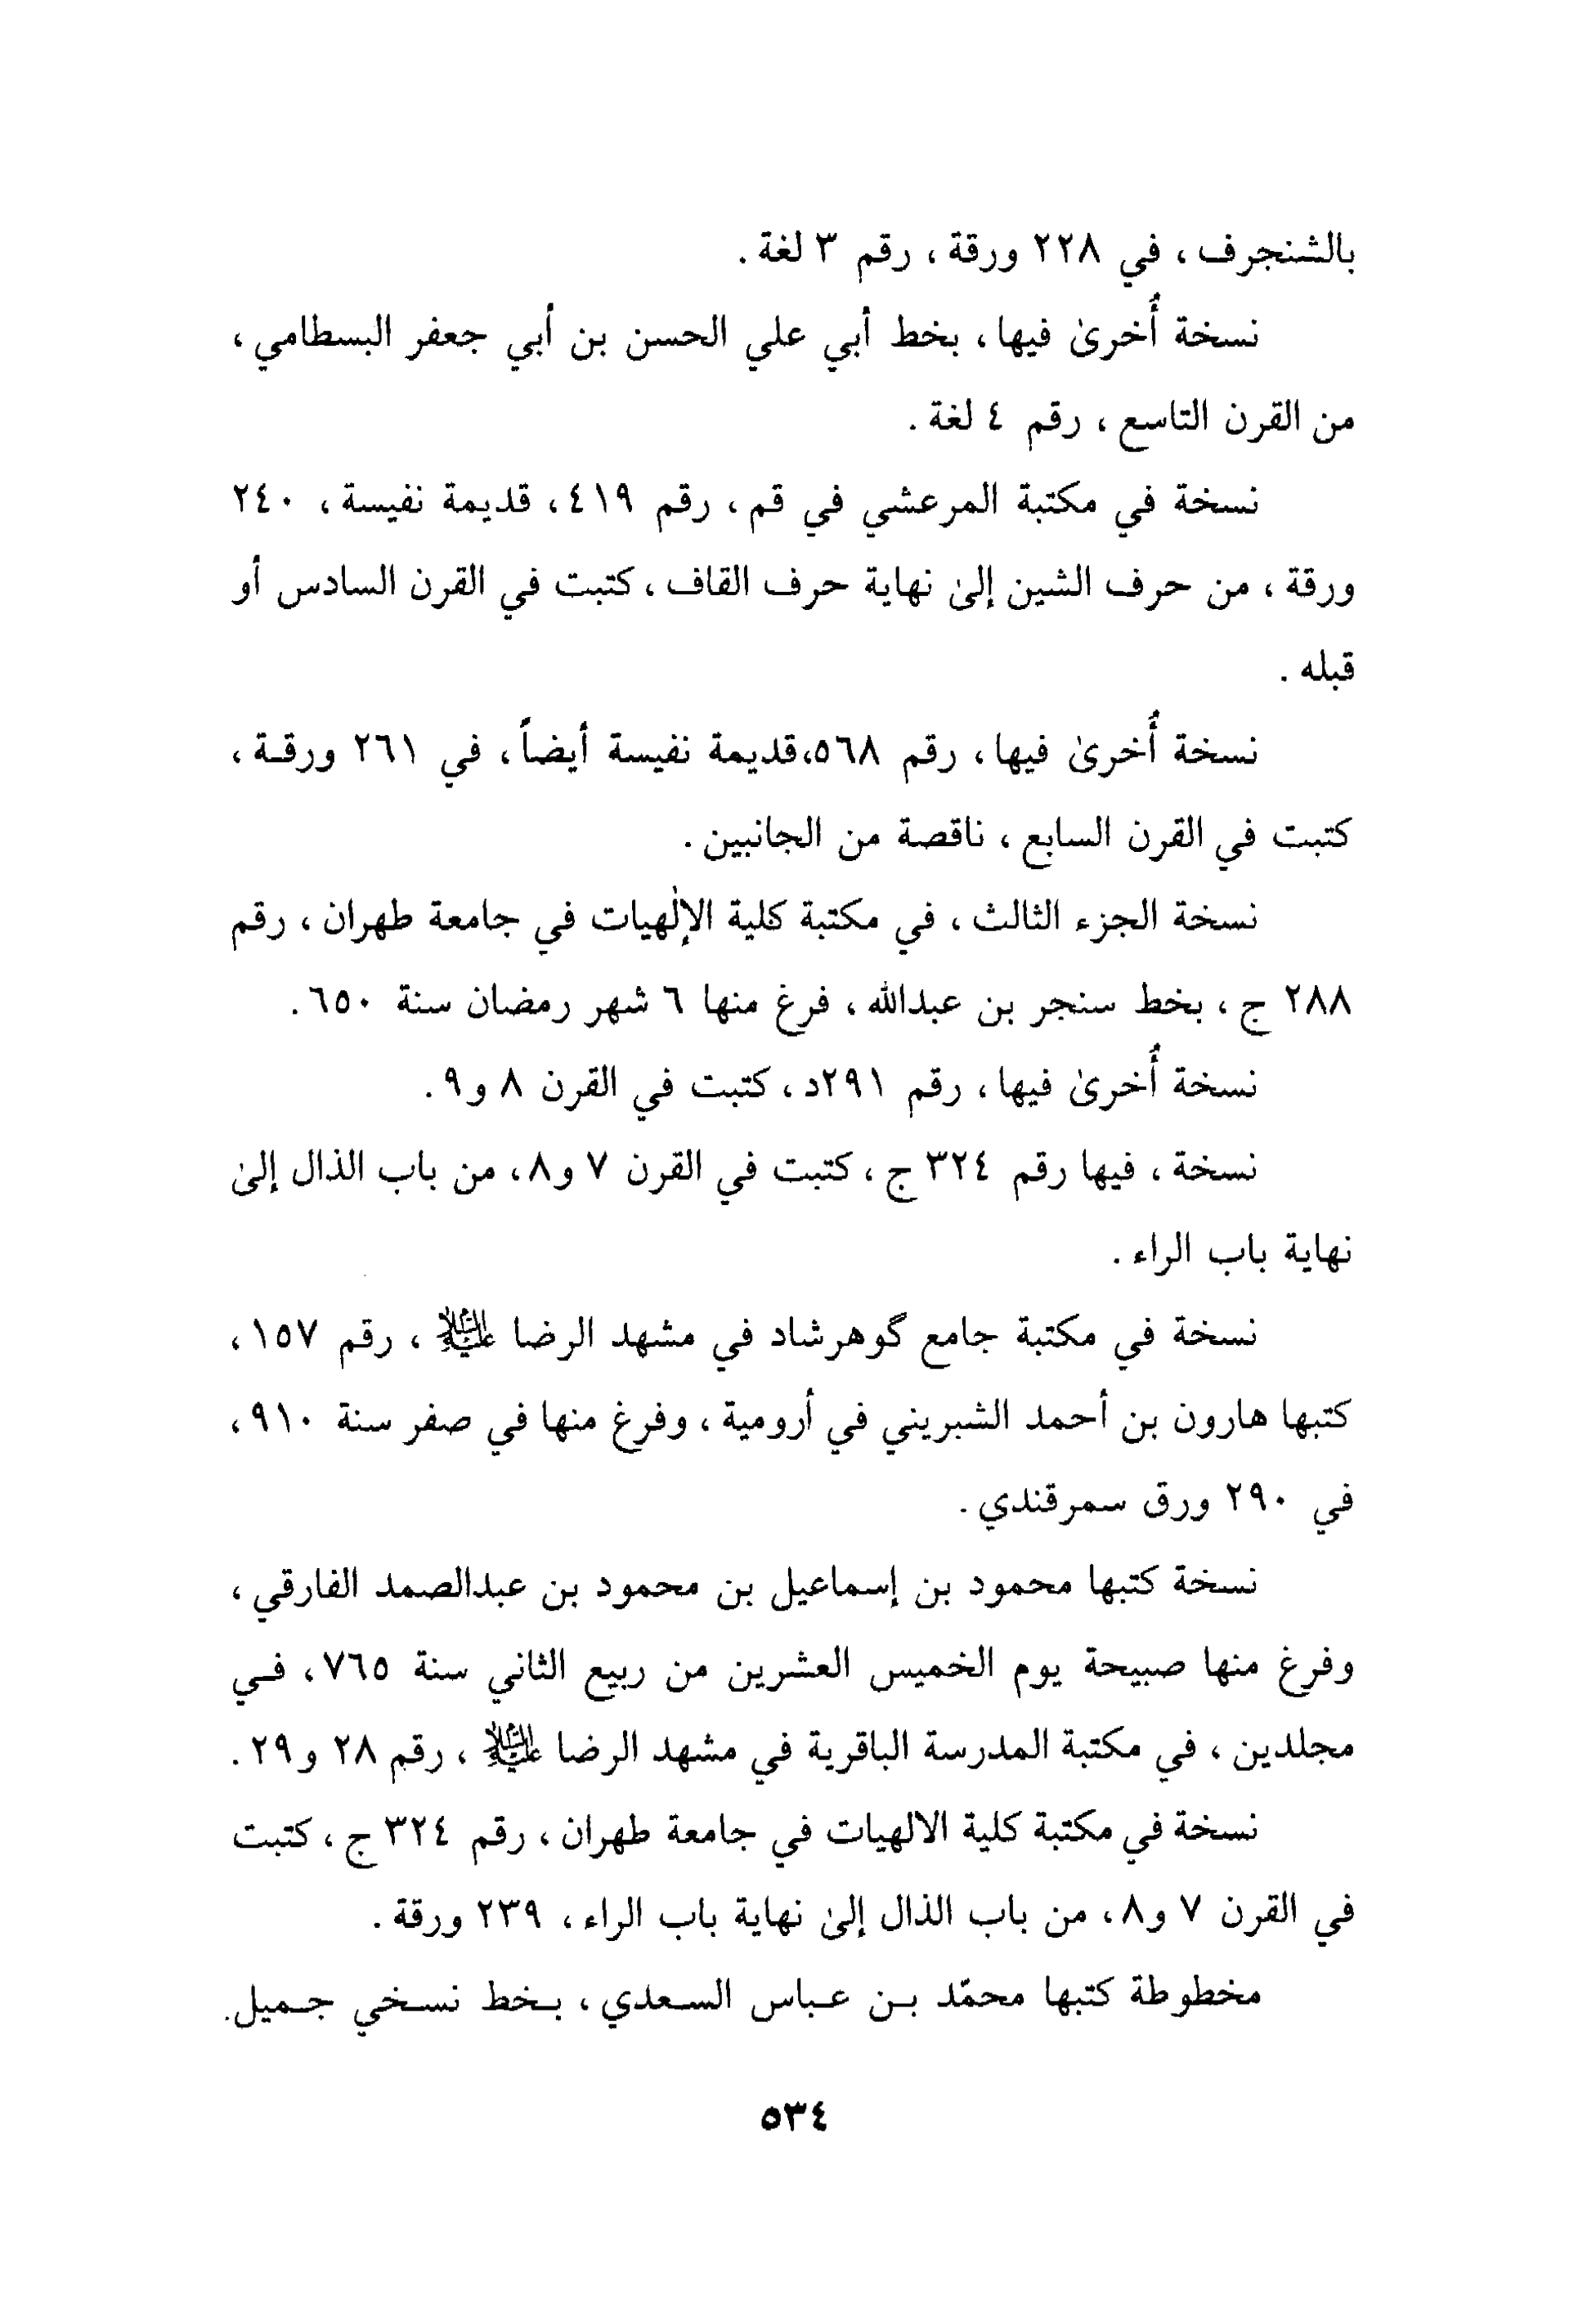 بالشنجرف ، في ٢٢٨ ورقة ، رقم ٣ لغة .
نسخة أُخرىٰ فيها ، بخط أبي علي الحسن بن أبي جعفر البسطامي ،
من القرن التاسع ، رقم ٤ لغة .
نسخة في مكتبة المرعشي في قم ، رقم ٤١٩ ، قديمة نفيسة ، ٢٤٠
ورقة ، من حرف الشين إلىٰ نهاية حرف القاف ، كتبت في القرن السادس أو
قبله .
نسخة أُخرىٰ فيها ، رقم ٥٦٨،قديمة نفيسة أيضاً ، في ٢٦١ ورقـة ،
كتبت في القرن السابع ، ناقصة من الجانبين .
نسخة الجزء الثالث ، في مكتبة كلية الإلٰهيات في جامعة طهران ، رقم
٢٨٨ ج ، بخط سنجر بن عبدالله ، فرغ منها ٦ شهر رمضان سنة ٦٥٠ .
نسخة أُخرىٰ فيها ، رقم ٢٩١د ، كتبت في القرن ٨ و٩ .
نسخة ، فيها رقم ٣٢٤ ج ، كتبت في القرن ٧ و٨ ، من باب الذال إلىٰ
نهاية باب الراء .
نسخة في مكتبة جامع گوهرشاد في مشهد الرضا عليه السلام ، رقم ١٥٧ ،
كتبها هارون بن أحمد الشبريني في أرومية ، وفرغ منها في صفر سنة ٩١٠ ،
في ٢٩٠ ورق سمرقندي .
نسخة كتبها محمود بن إسماعيل بن محمود بن عبدالصمد الفارقي ،
وفرغ منها صبيحة يوم الخميس العشرين من ربيع الثاني سنة ٧٦٥ ، فـي
مجلدين ، في مكتبة المدرسة الباقرية في مشهد الرضا عليه السلام ، رقم ٢٨ و٢٩ .
نسخة في مكتبة كلية الالهيات في جامعة طهران ، رقم ٣٢٤ ج ، كتبت
في القرن ٧ و٨ ، من باب الذال إلىٰ نهاية باب الراء ، ٢٣٩ ورقة .
مخطوطة كتبها محمّد بـن عـباس السـعدي ، بـخط نسـخي جـميل.
٥٣٤